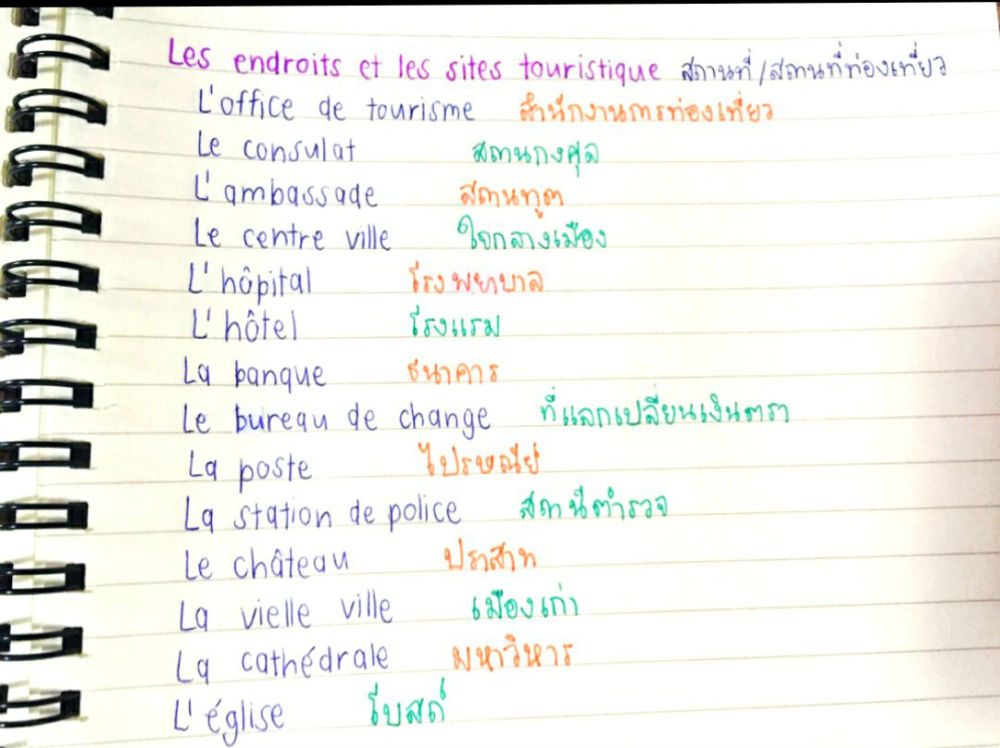 Les endroits et les sites touristique สถานที่/สถานที่ท่องเที่ยว
L'office de tourisme สำนักงานการท่องเที่ยว
Le consulat สถานกงศุล
L'ambassade สถานทูต
Le centre ville ใจกลางเมือง
L'hôpital โรงพยาบาล
L'hôtel โรงแรม
La banque ธนาคาร
Le bureau de change ที่แลกเปลี่ยนเงินตรา
La poste ไปรษณีย์
La station de police สถานีตำรวจ
Le château ปราสาท
La vielle ville เมืองเก่า
La cathédrale มหาวิหาร
L'église โบสถ์